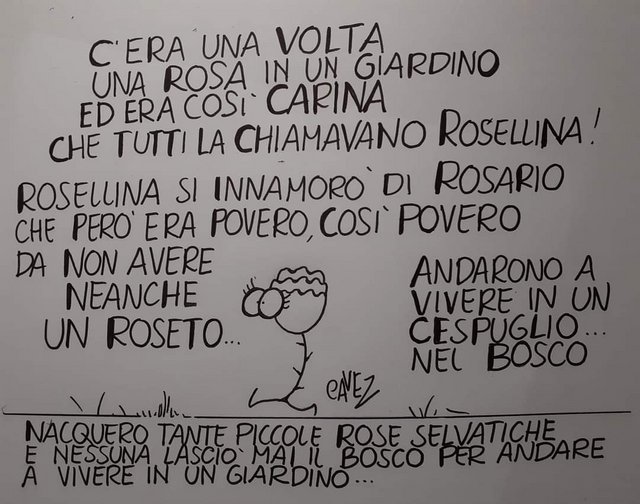 C'ERA UNA VOLTA
UNA ROSA IN UN GIARDINO
ED ERA COSÌ CARINA
CHE TUTTI LA CHIAMAVANO ROSELLINA!
ROSELLINA SI INNAMORÒ DI ROSARIO
CHE PERÒ ERA POVERO, COSÌ POVERO
DA NON AVERE
NEANCHE
UN ROSETO...
ANDARONO A
VIVERE IN UN
CESPUGLIO...
NEL BOSCO
CAVEZ
NACQUERO TANTE PICCOLE ROSE SELVATICHE
E NESSUNA LASCIÒ MAI IL BOSCO PER ANDARE
A VIVERE IN UN GIARDINO...